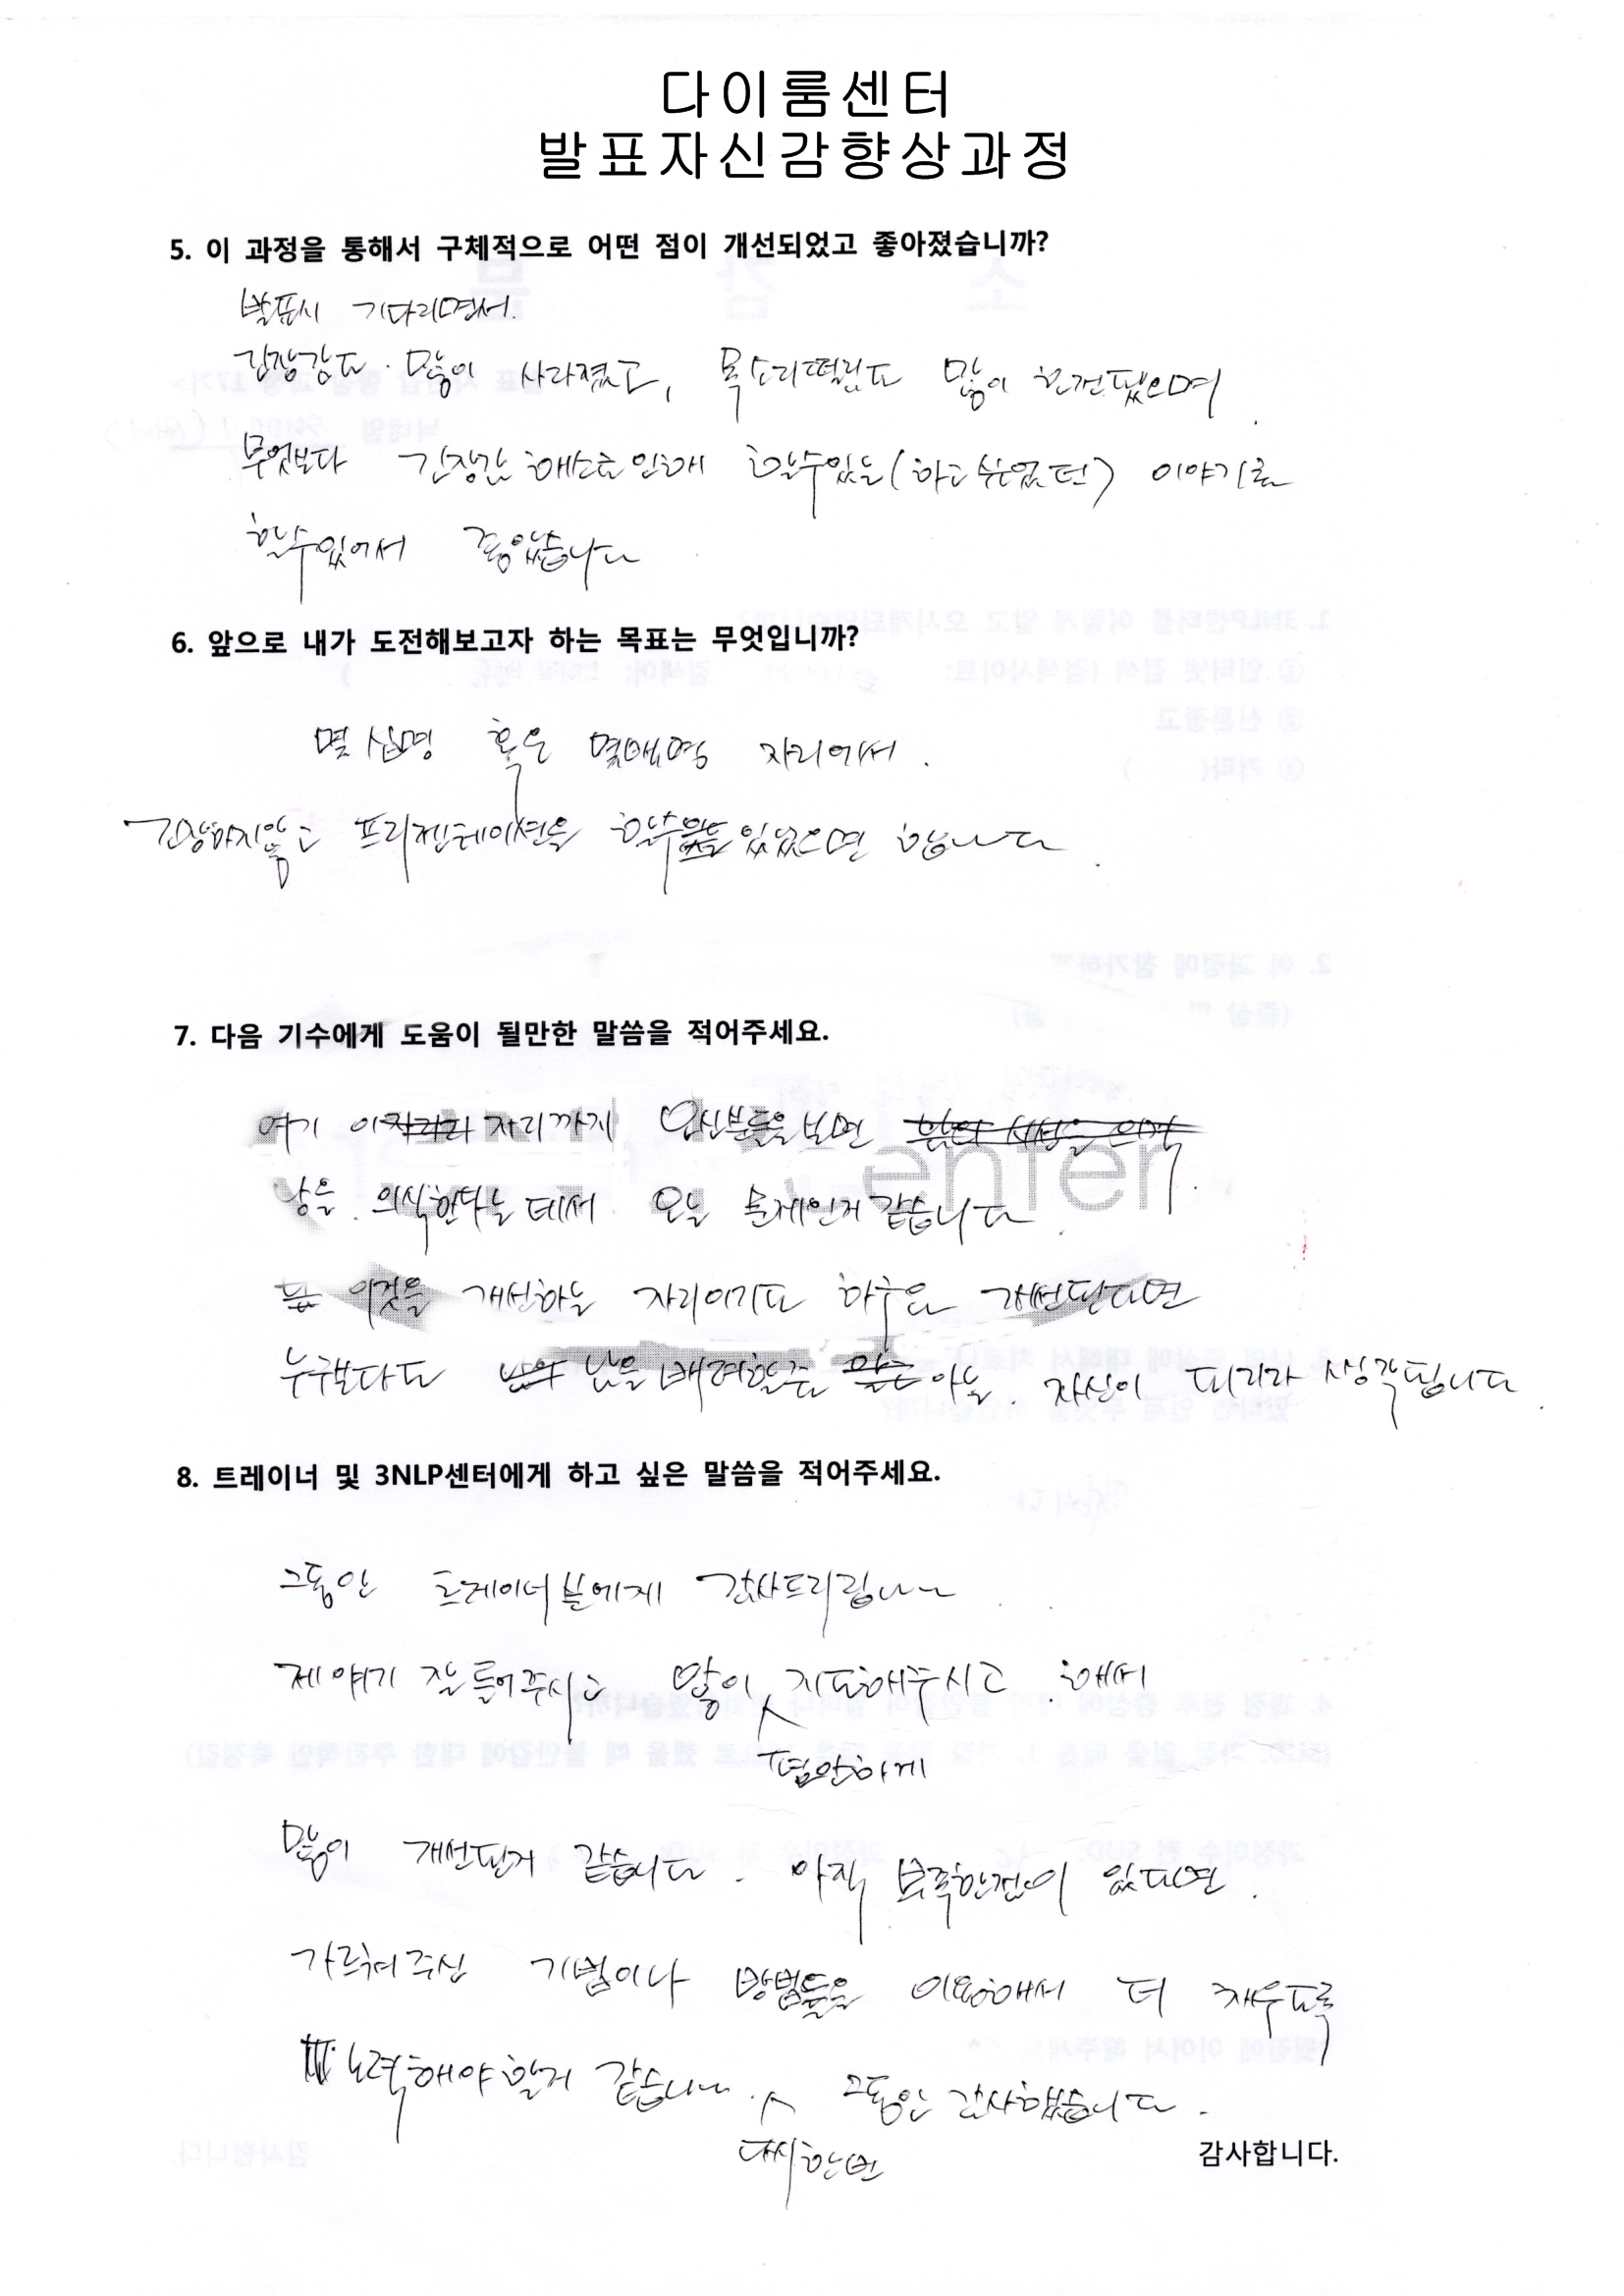 다이룸센터
발표자신감향상과정
5. 이 과정을 통해서 구체적으로 어떤 점이 개선되었고 좋아졌습니까?
발표시 기다리면서.
긴장감도 많이 사라졌고, 목소리떨림도 많이 호전됐으며
무엇보다 긴장감 해소로 인해 할수있는(하고 싶었던) 이야기를
할수있어서 좋았습니다
6. 앞으로 내가 도전해보고자 하는 목표는 무엇입니까?
몇 십명 혹은 몇백명 자리에서.
긴장하지않고 프리젠테이션을 할수 있었으면 합니다.
7. 다음 기수에게 도움이 될만한 말씀을 적어주세요.
여기 이 자리까지 오신분들을 보면
남을 의식한다는 데서 오는 문제인거 같습니다.
이것을 개선하는 자리이기도 하구요 개선된다면
누구보다도 남을 배려할줄 아는 자신이 되리라 생각됩니다.
8. 트레이너 및 3NLP센터에게 하고 싶은 말씀을 적어주세요.
그동안 트레이너분에게 감사드립니다.
제 얘기 잘 들어주시고 많이 지도해주시고 해서
편안하게
많이 개선된거 같습니다. 아직 부족한점이 있다면.
가르쳐주신 기법이나 방법들을 이용해서 더 채우도록
노력해야 할거 같습니다. 그동안 감사했습니다.
다시한번
감사합니다.